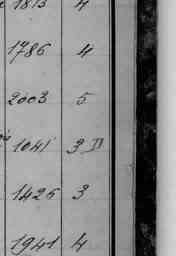 1813 4
1786 4
2003 5
1041 3 II
1426 3
1941 4